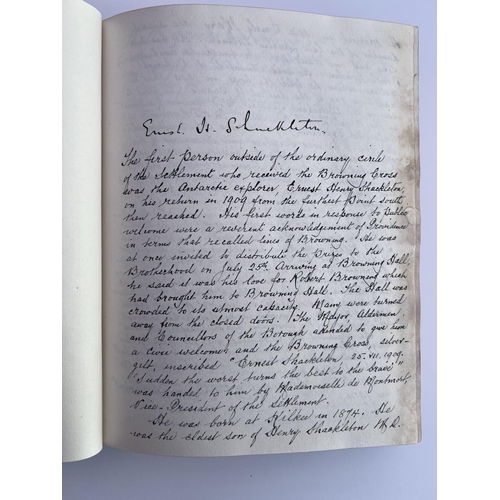 Ernest H. Shackleton.
The first person outside of the ordinary circle
of the Settlement who received the Browning Cross
was the Antarctic explorer, Ernest Henry Shackleton,
on his return in 1909 from the furthest point south
then reached. His first words in response to public
welcome were a reverent acknowledgment of Providence
in terms that recalled lines of Browning. He was
at once invited to distribute the Prizes to the
Brotherhood on July 25th. Arriving at Browning Hall,
he said it was his love for Robert Browning which
had brought him to Browning Hall. The Hall was
crowded to its utmost capacity. Many were turned
away from the closed doors. The Mayor, Aldermen
and Councillors of the Borough attended to give him
a civic welcome, and the Browning Cross, silver-
gilt, inscribed "Ernest Shackleton, 25.vii.1909.
"Sudden the worst turns the best to the brave""
was handed to him by Mademoiselle de Montmort,
Vice-President of the Settlement.
He was born at Kilkee in 1874. He
was the eldest son of Henry Shackleton M.D.